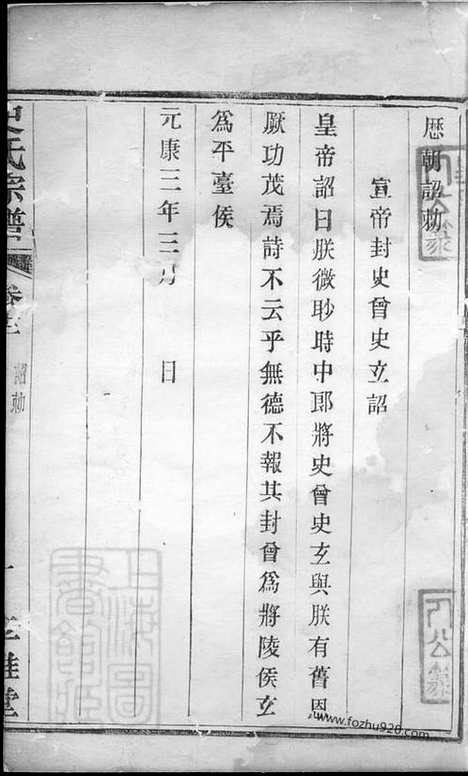 歴朝詔勅
宣帝封史曾史立詔
皇帝詔曰朕微眇時中郎將史曾史玄與朕有舊恩
厥功茂焉詩不云乎無德不報其封曾爲將陵侯玄
爲平臺侯
元康三年三月 日
史氏宗譜
卷三
詔勅
一
上海圖書館藏
www.fozhu920.com